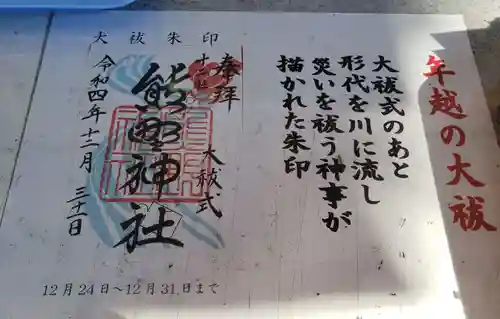 年越の大祓
大祓式のあと
形代を川に流し
災いを祓う神事が
描かれた朱印
大祓朱印
奉拝
大祓式
熊野神社
令和四年十二月三十一日
12月24日~12月31日まで